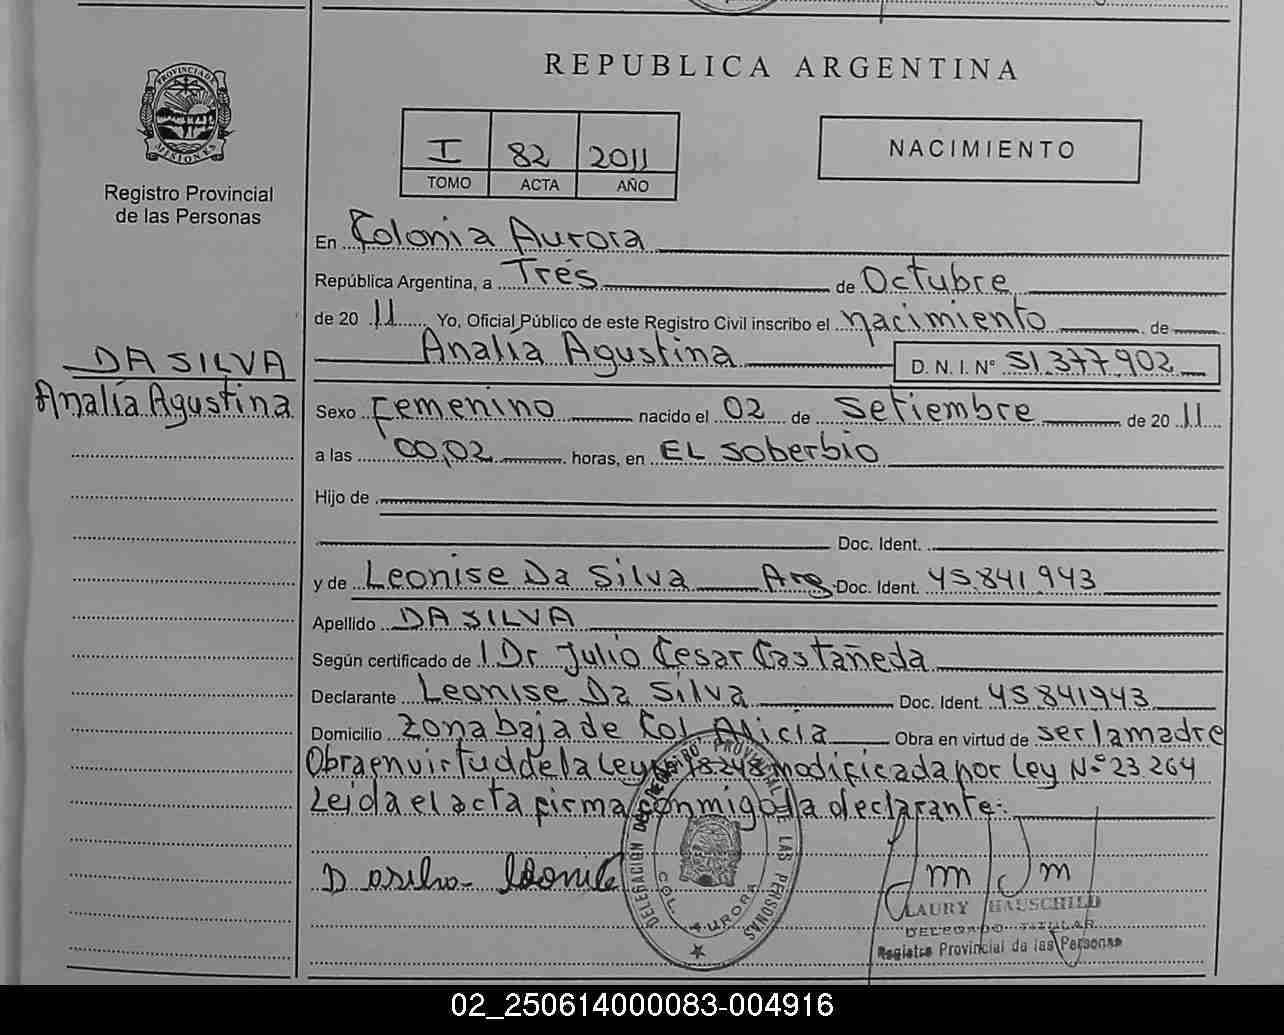 REPUBLICA ARGENTINA
PROVINCIA DE MISIONES
Registro Provincial
de las Personas
I 82 2011
TOMO ACTA AÑO
NACIMIENTO
En Colonia Aurora
República Argentina, a Trés de Octubre
de 20 11 Yo, Oficial Público de este Registro Civil inscribo el nacimiento de
Analía Agustina D. N. I. Nº 51.377.902
DA SILVA
Analía Agustina
Sexo Femenino nacido el 02 de Setiembre de 20 11
a las 00,02 horas, en EL Soberbio
Hijo de
Doc. Ident.
y de Leonise Da Silva Arg Doc. Ident. 45.841.943
Apellido DA SILVA
Según certificado de Dr Julio Cesar Castañeda
Declarante Leonise Da Silva Doc. Ident. 45841943
Domicilio zona baja de Col Alicia Obra en virtud de ser la madre
Obra en virtud de la Ley 18248 modificada por Ley Nº 23264
Leida el acta firma conmigo la declarante:
DELEGACIÓN DEL REGISTRO PROVINCIAL DE LAS PERSONAS
COL. AURORA
LAURY HAUSCHILD
DELEGADO TITULAR
Registro Provincial de las Personas
02_250614000083-004916